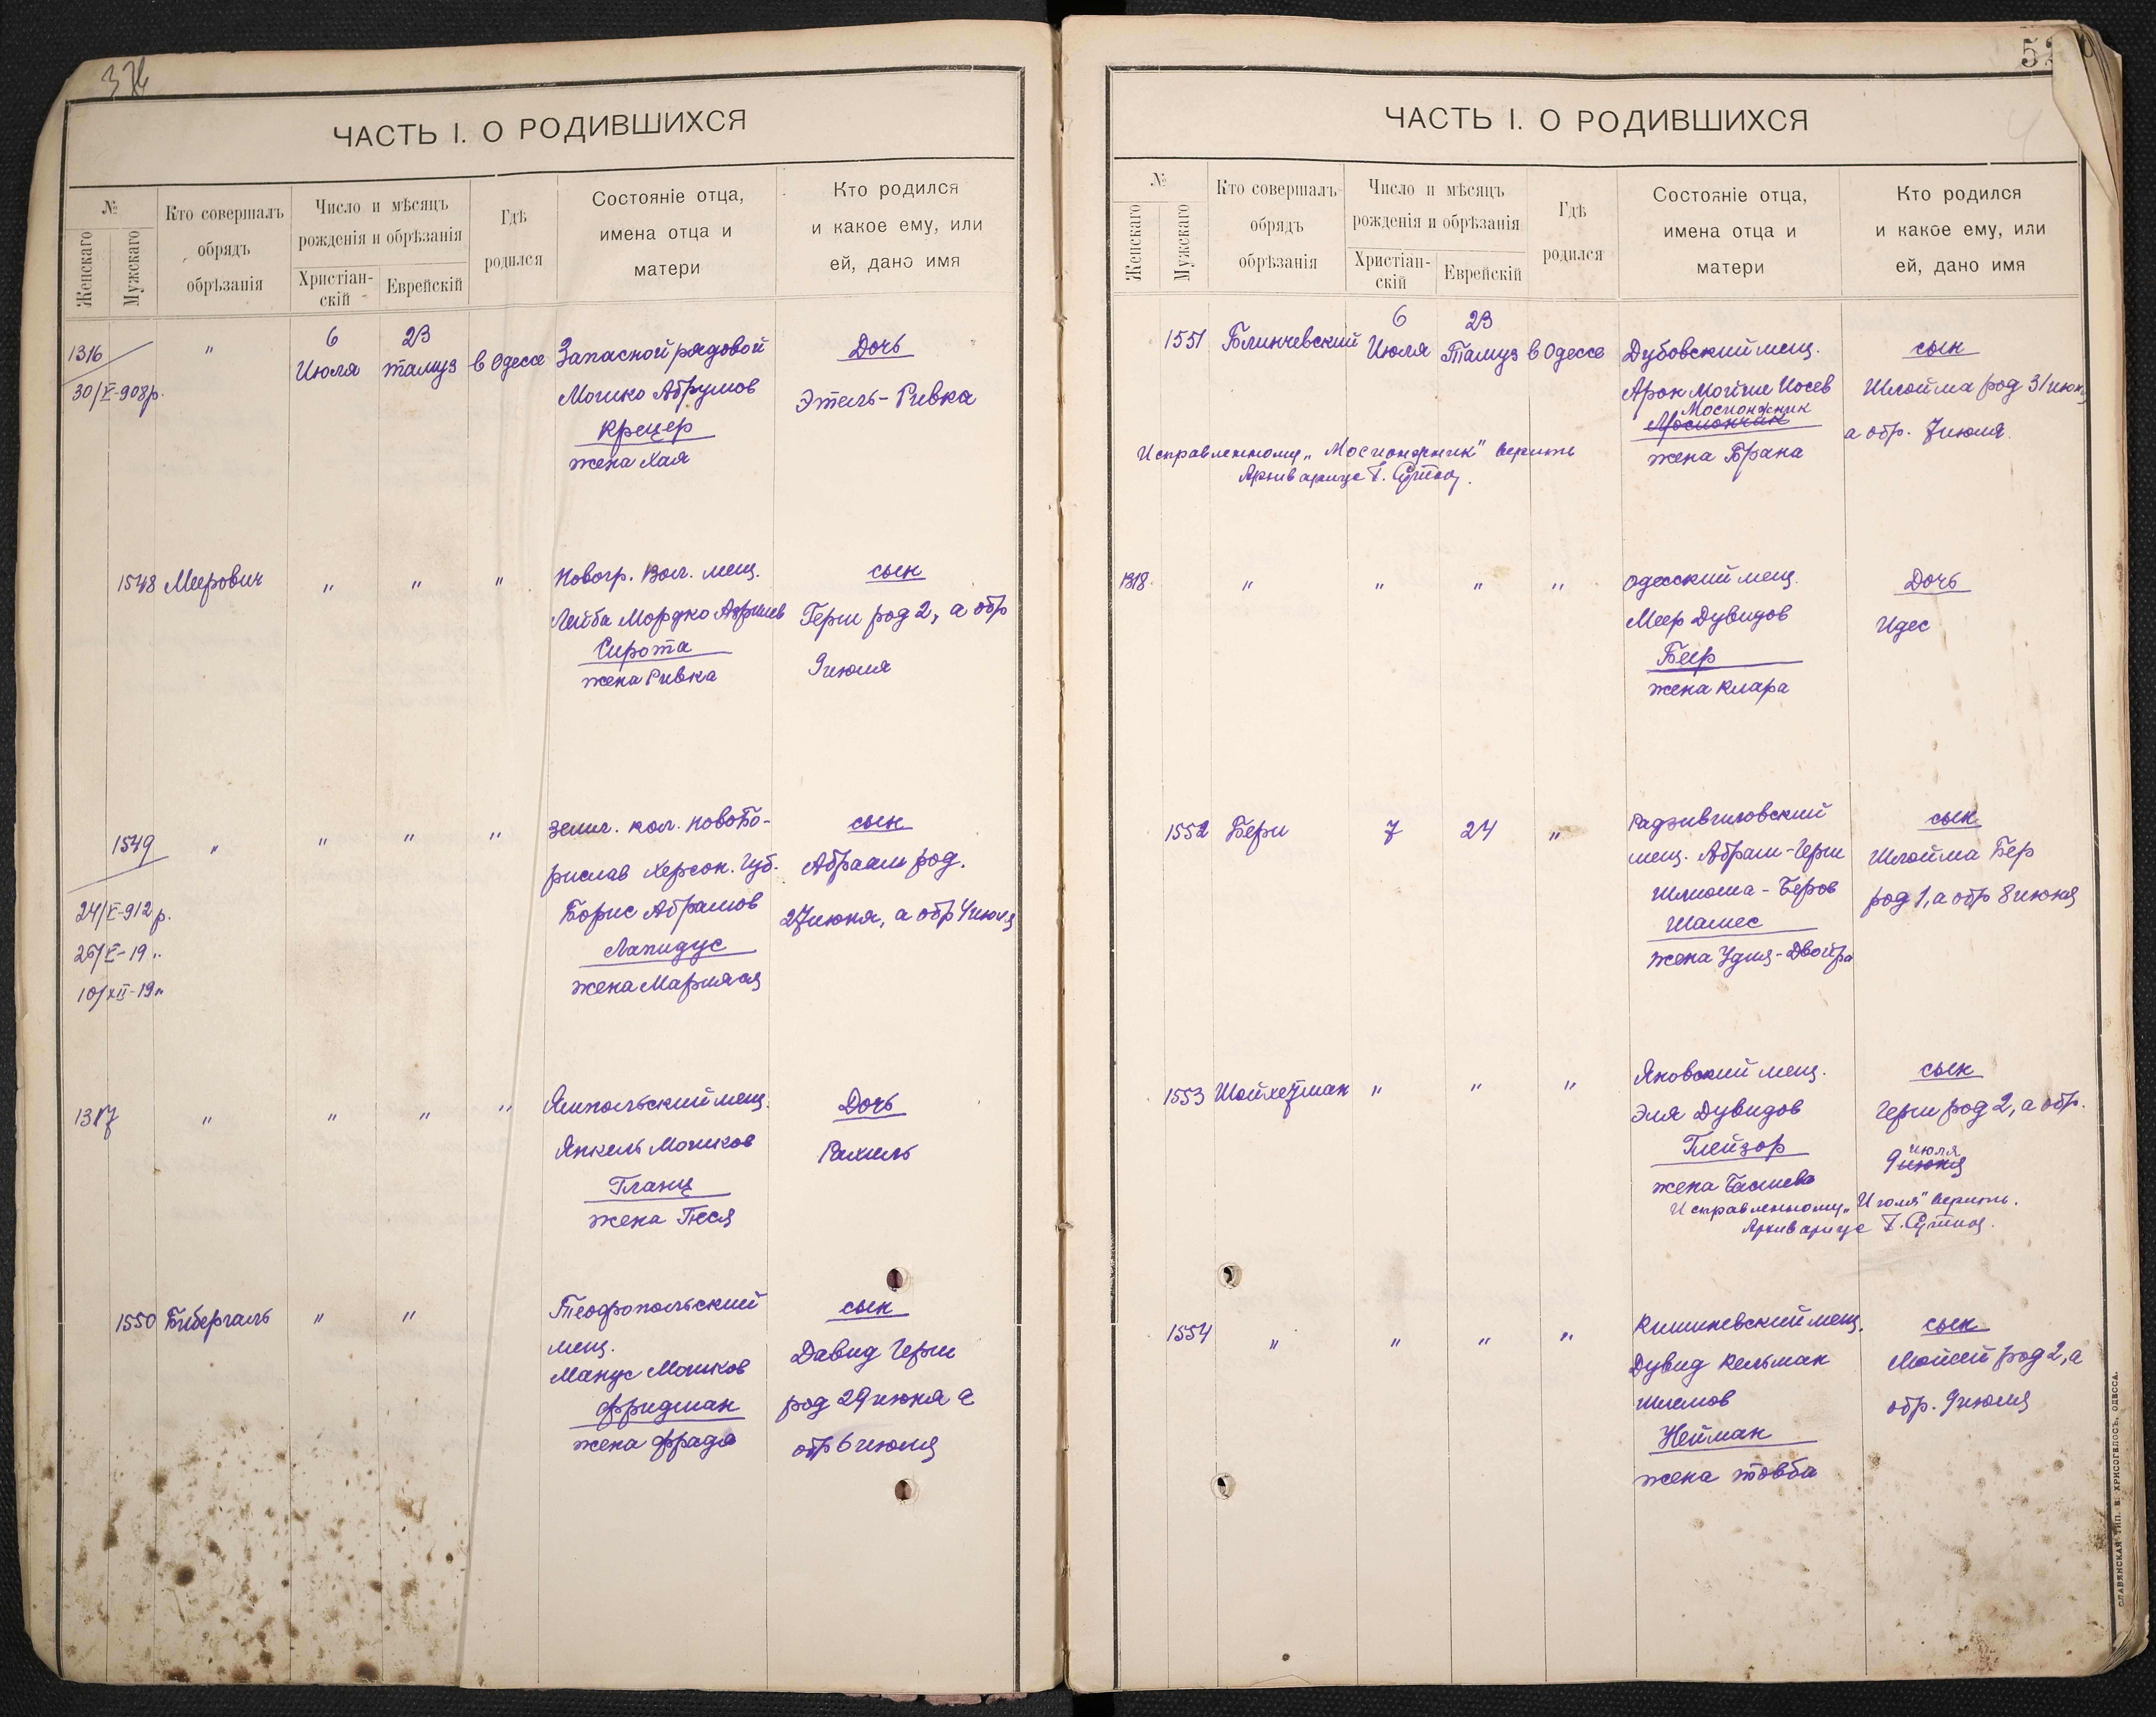 376
ЧАСТЬ I. О РОДИВШИХСЯ
№
Женскаго
Мужскаго
Кто совершалъ
обрядъ
обрѣзанія
Число и мѣсяцъ
рожденія и обрѣзанія
Христіан-
скій
Еврейскій
Гдѣ
родился
Состояніе отца,
имена отца и
матери
Кто родился
и какое ему, или
ей, дано имя
1316 " 6 Июля 23 тамуз в Одессе Запасной рядовой Дочь
30/V-908р.
Мошко Абрумов Этель-Ривка
Крецер
жена Хая
1548 Меерович " " " Новогр. Вол. мещ. сын
Лейба Мордко Азрилев Герш род 2, а обр
Сирота 9 июля
жена Ривка
1549 " " " " земл. кол. Ново Бо- сын
рислав Херсон. Губ. Абраам род.
24/V-912 р. Борис Абрамов 27 июня, а обр 4 июля
26/V-19 " Лапидус
10/XII-19 " жена Мариася
1317 " " " " Ямпольский мещ. Дочь
Янкель Мошков Рахиль
Гланц
жена Песя
1550 Бибергаль " " Теофропольский сын
мещ.
Манус Мошков Давид Герш
Фридман род 29 июня а
жена Фрада обр 6 июля
ЧАСТЬ I. О РОДИВШИХСЯ
№
Женскаго
Мужскаго
Кто совершалъ
обрядъ
обрѣзанія
Число и мѣсяцъ
рожденія и обрѣзанія
Христіан-
скій
Еврейскій
Гдѣ
родился
Состояніе отца,
имена отца и
матери
Кто родился
и какое ему, или
ей, дано имя
1551 Блинчевский 6 Июля 23 Тамуз в Одессе Дубовский мещ. сын
Арон Мойше Иосев Шлойма род 31 июн
Мосионжник
Мосиончик а обр. 7 июля.
жена Брана
Исправленному „Мосионжник" верить
Архивариус
1318 " " " " Одесский мещ. Дочь
Меер Дувидов Идес
Беер
жена Клара
1552 Берш 7 24 " Радзивиловский сын
мещ. Абрам-Герш Шлойма Бер
Шлиома-Беров род 1, а обр 8 июня
Шамес
жена Удия-Двойра
1553 Шойхетман " " " Яновский мещ. сын
Эля Дувидов Герш род 2, а обр.
Глейзор июля
9 июня
жена Басшева
Исправленному „Июля" верить.
Архивариус
1554 " " " " Кишиневский мещ. сын
Дувид Кельман Мойсей род 2, а
Шлемов обр. 9 июля
Нейман
жена Товба
СЛАВЯНСКАЯ ТИП. Е. ХРИСОГЕЛОСЪ, ОДЕССА.